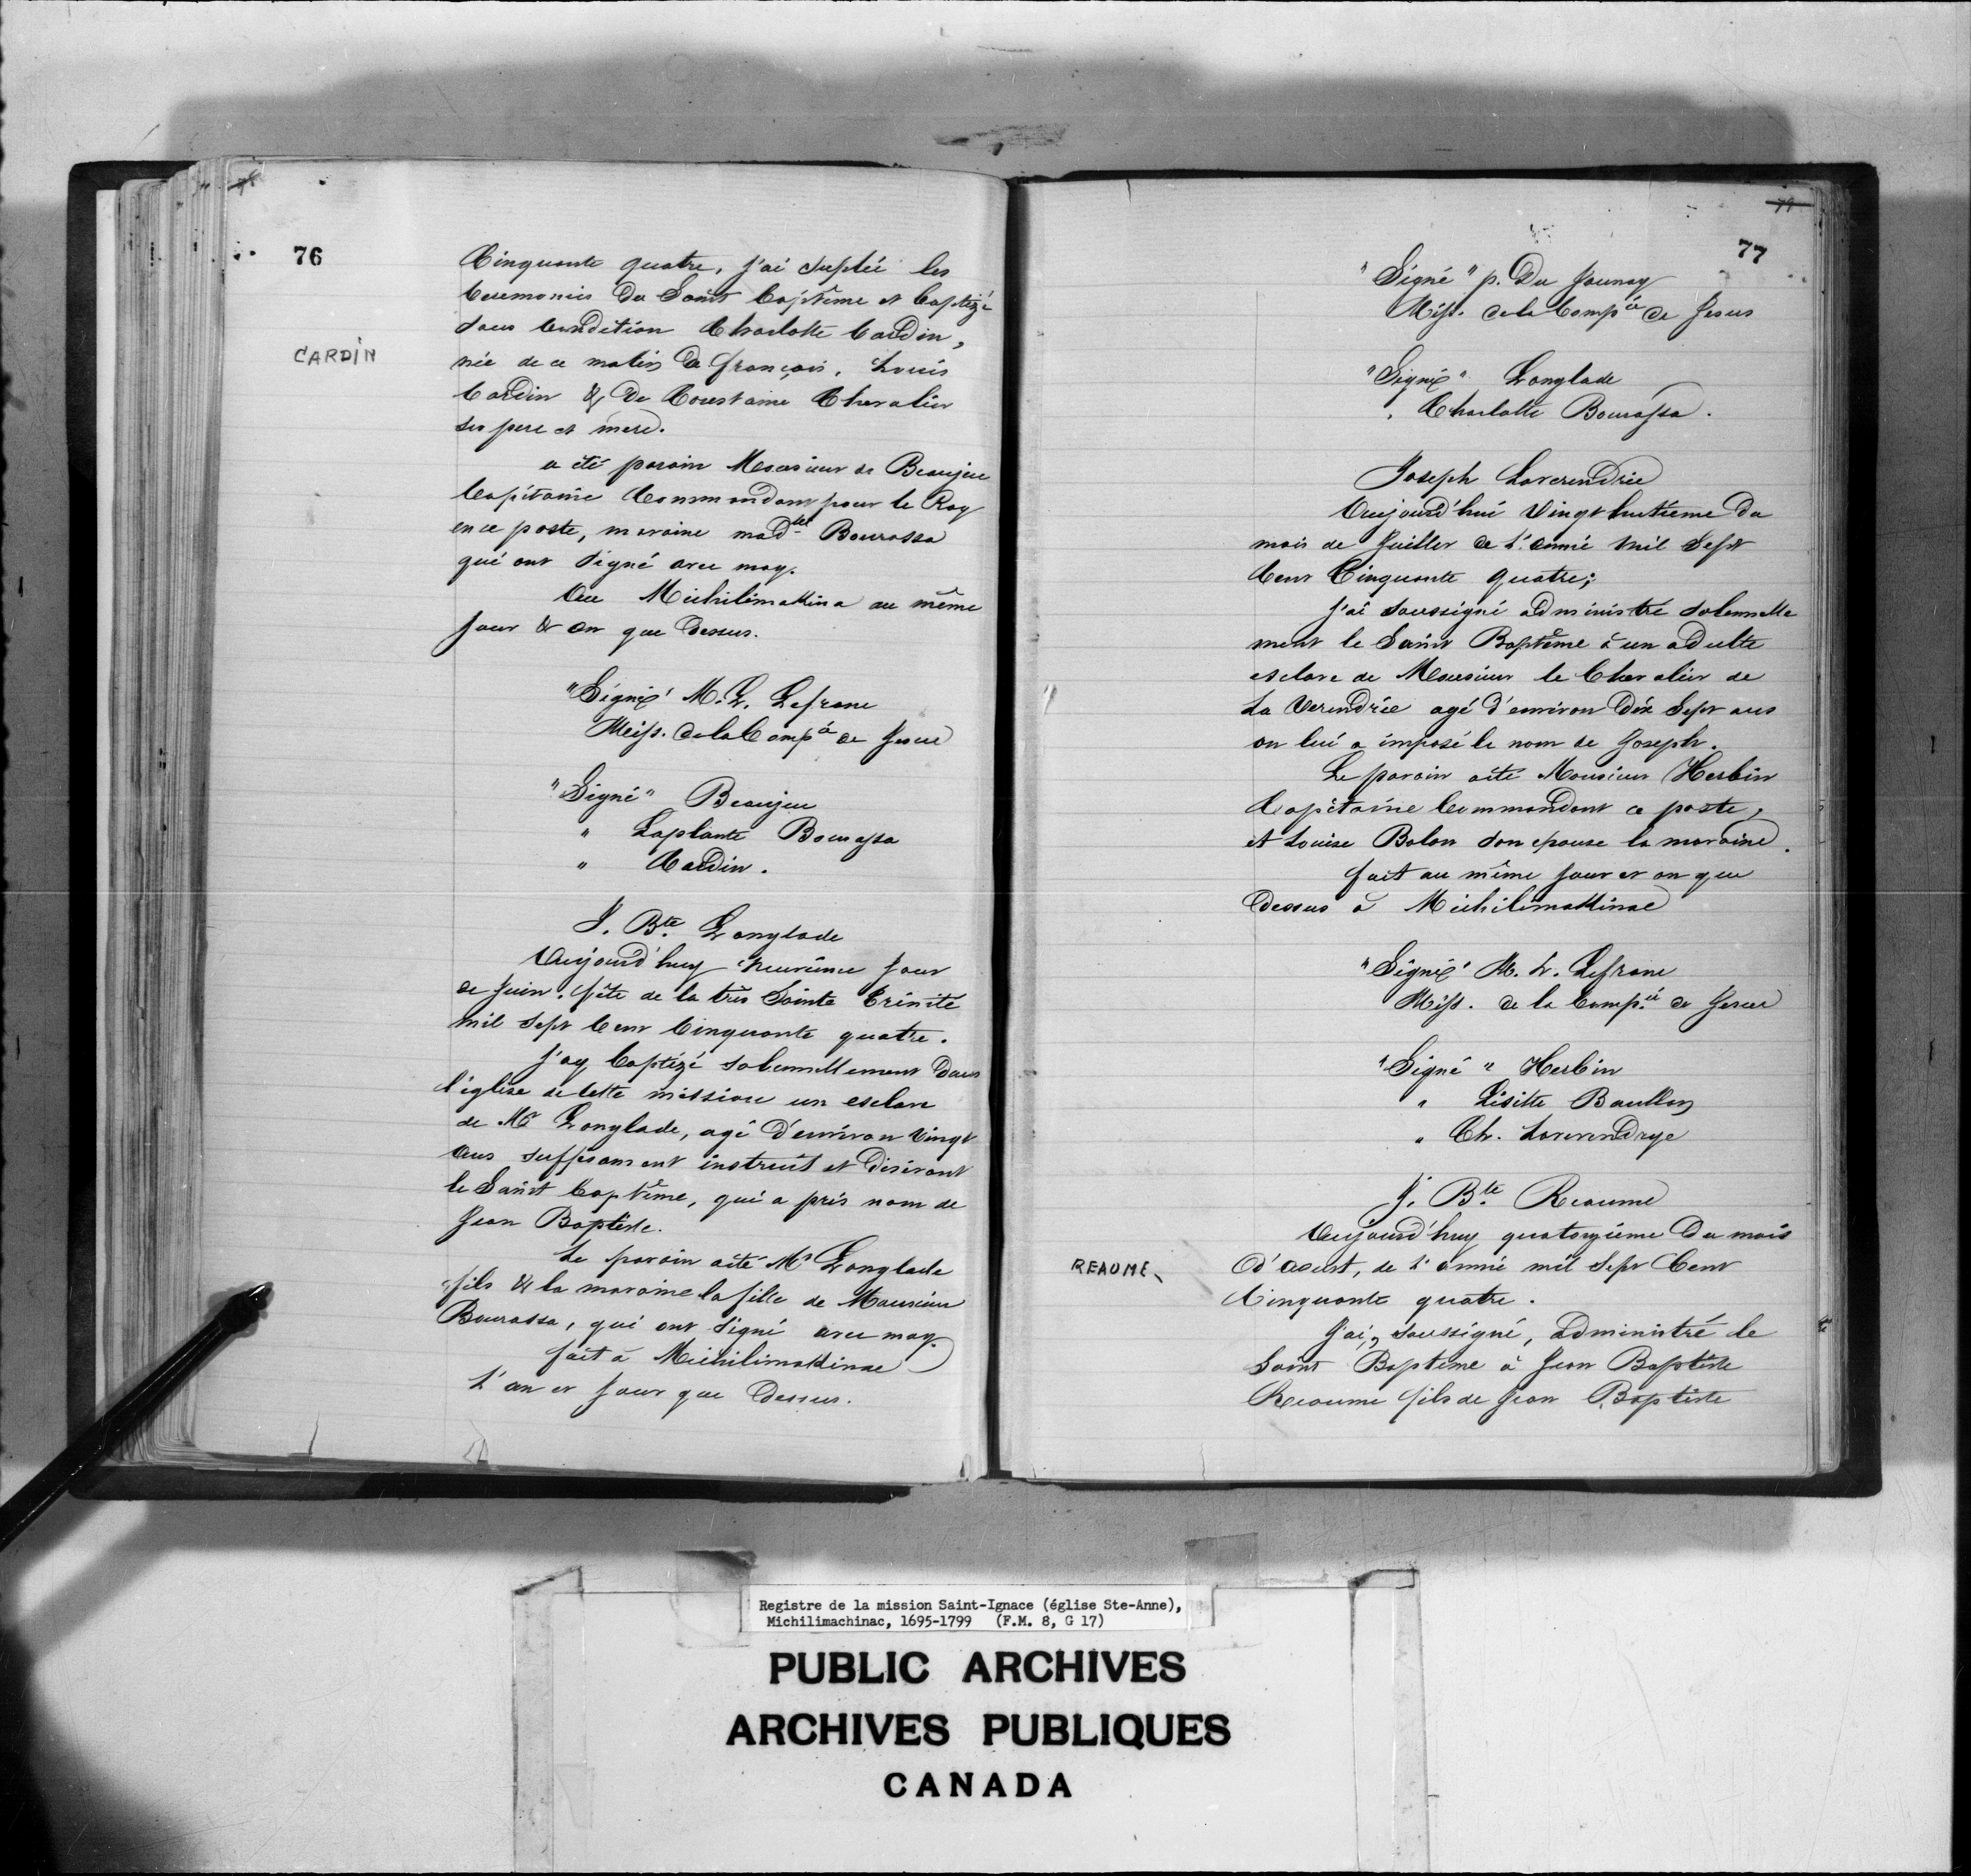 76
Cinquante quatre, j'ai suplée les
Ceremonies du Saint baptême et baptizé
sous Condition Charlotte Cardin,
CARDIN
née de ce matin de françois, Louis
Cardin & de Coustame Chevalier
ses pere et mere.
a été parain Mousieur de Beaujeu
Capitaine Commandant pour le Roy
en ce poste, maraine mad.lle Bourassa
qui ont signé avec moy.
Au Michilimakina au même
jour & an que dessus.
"Signé" M. L. Lefranc
Miss. de la Comp.ie de Jesus
"Signé" Beaujeu
" Laplante Bourassa
" Cardin.
J. Bte. Langlade
Aujourd'huy neuvième jour
de juin, fête de la très Sainte Trinité
mil sept Cent Cinquante quatre.
J'ay baptizé solemnellement dans
l'église de cette mission un esclave
de Mr Langlade, agé d'environ vingt
ans suffisament instruit et désirant
le Saint baptême, qui a pris nom de
Jean Baptiste.
Le parain aété Mr Langlade
fils & la maraine la fille de Monsieur
Bourassa, qui ont signé avec moy.
fait à Michilimakinac
L'an et jour que dessus.
77
"Signé" p. Du Jaunay
Miss. de la Comp.ie de Jesus
"Signé" Langlade
" Charlotte Bourassa.
Joseph Laverendrie
Aujourd'hui vingt huitième du
mois de Juillet de L'année mil Sept
Cent Cinquante quatre;
j'ai soussigné administré solemnelle
ment le Saint Baptême à un adulte
esclave de Mousieur le Chevalier de
La Verendrie agé d'environ dix Sept ans
on lui a imposé le nom de Joseph.
Le parain aété Monsieur Herbin
Capitaine Commandant ce poste,
et Louise Bolon son epouse la maraine.
fait au même jour et an que
dessus à Michilimakinac
"Signé" M. L. Lefranc
Miss. de la Comp.ie de Jesus
"Signé" Herbin
" Lisitte Baullon
" Ch. Laverendrye
J. Bte. Reaume
Aujourd'huy quatorzième du mois
REAUME
d'aoust, de L'année mil Sept Cent
Cinquante quatre.
J'ai, soussigné, administré le
Saint Baptême à Jean Baptiste
Reaume fils de Jean Baptiste
Registre de la mission Saint-Ignace (église Ste-Anne),
Michilimachinac, 1695-1799 (F.M. 8, G 17)
PUBLIC ARCHIVES
ARCHIVES PUBLIQUES
CANADA